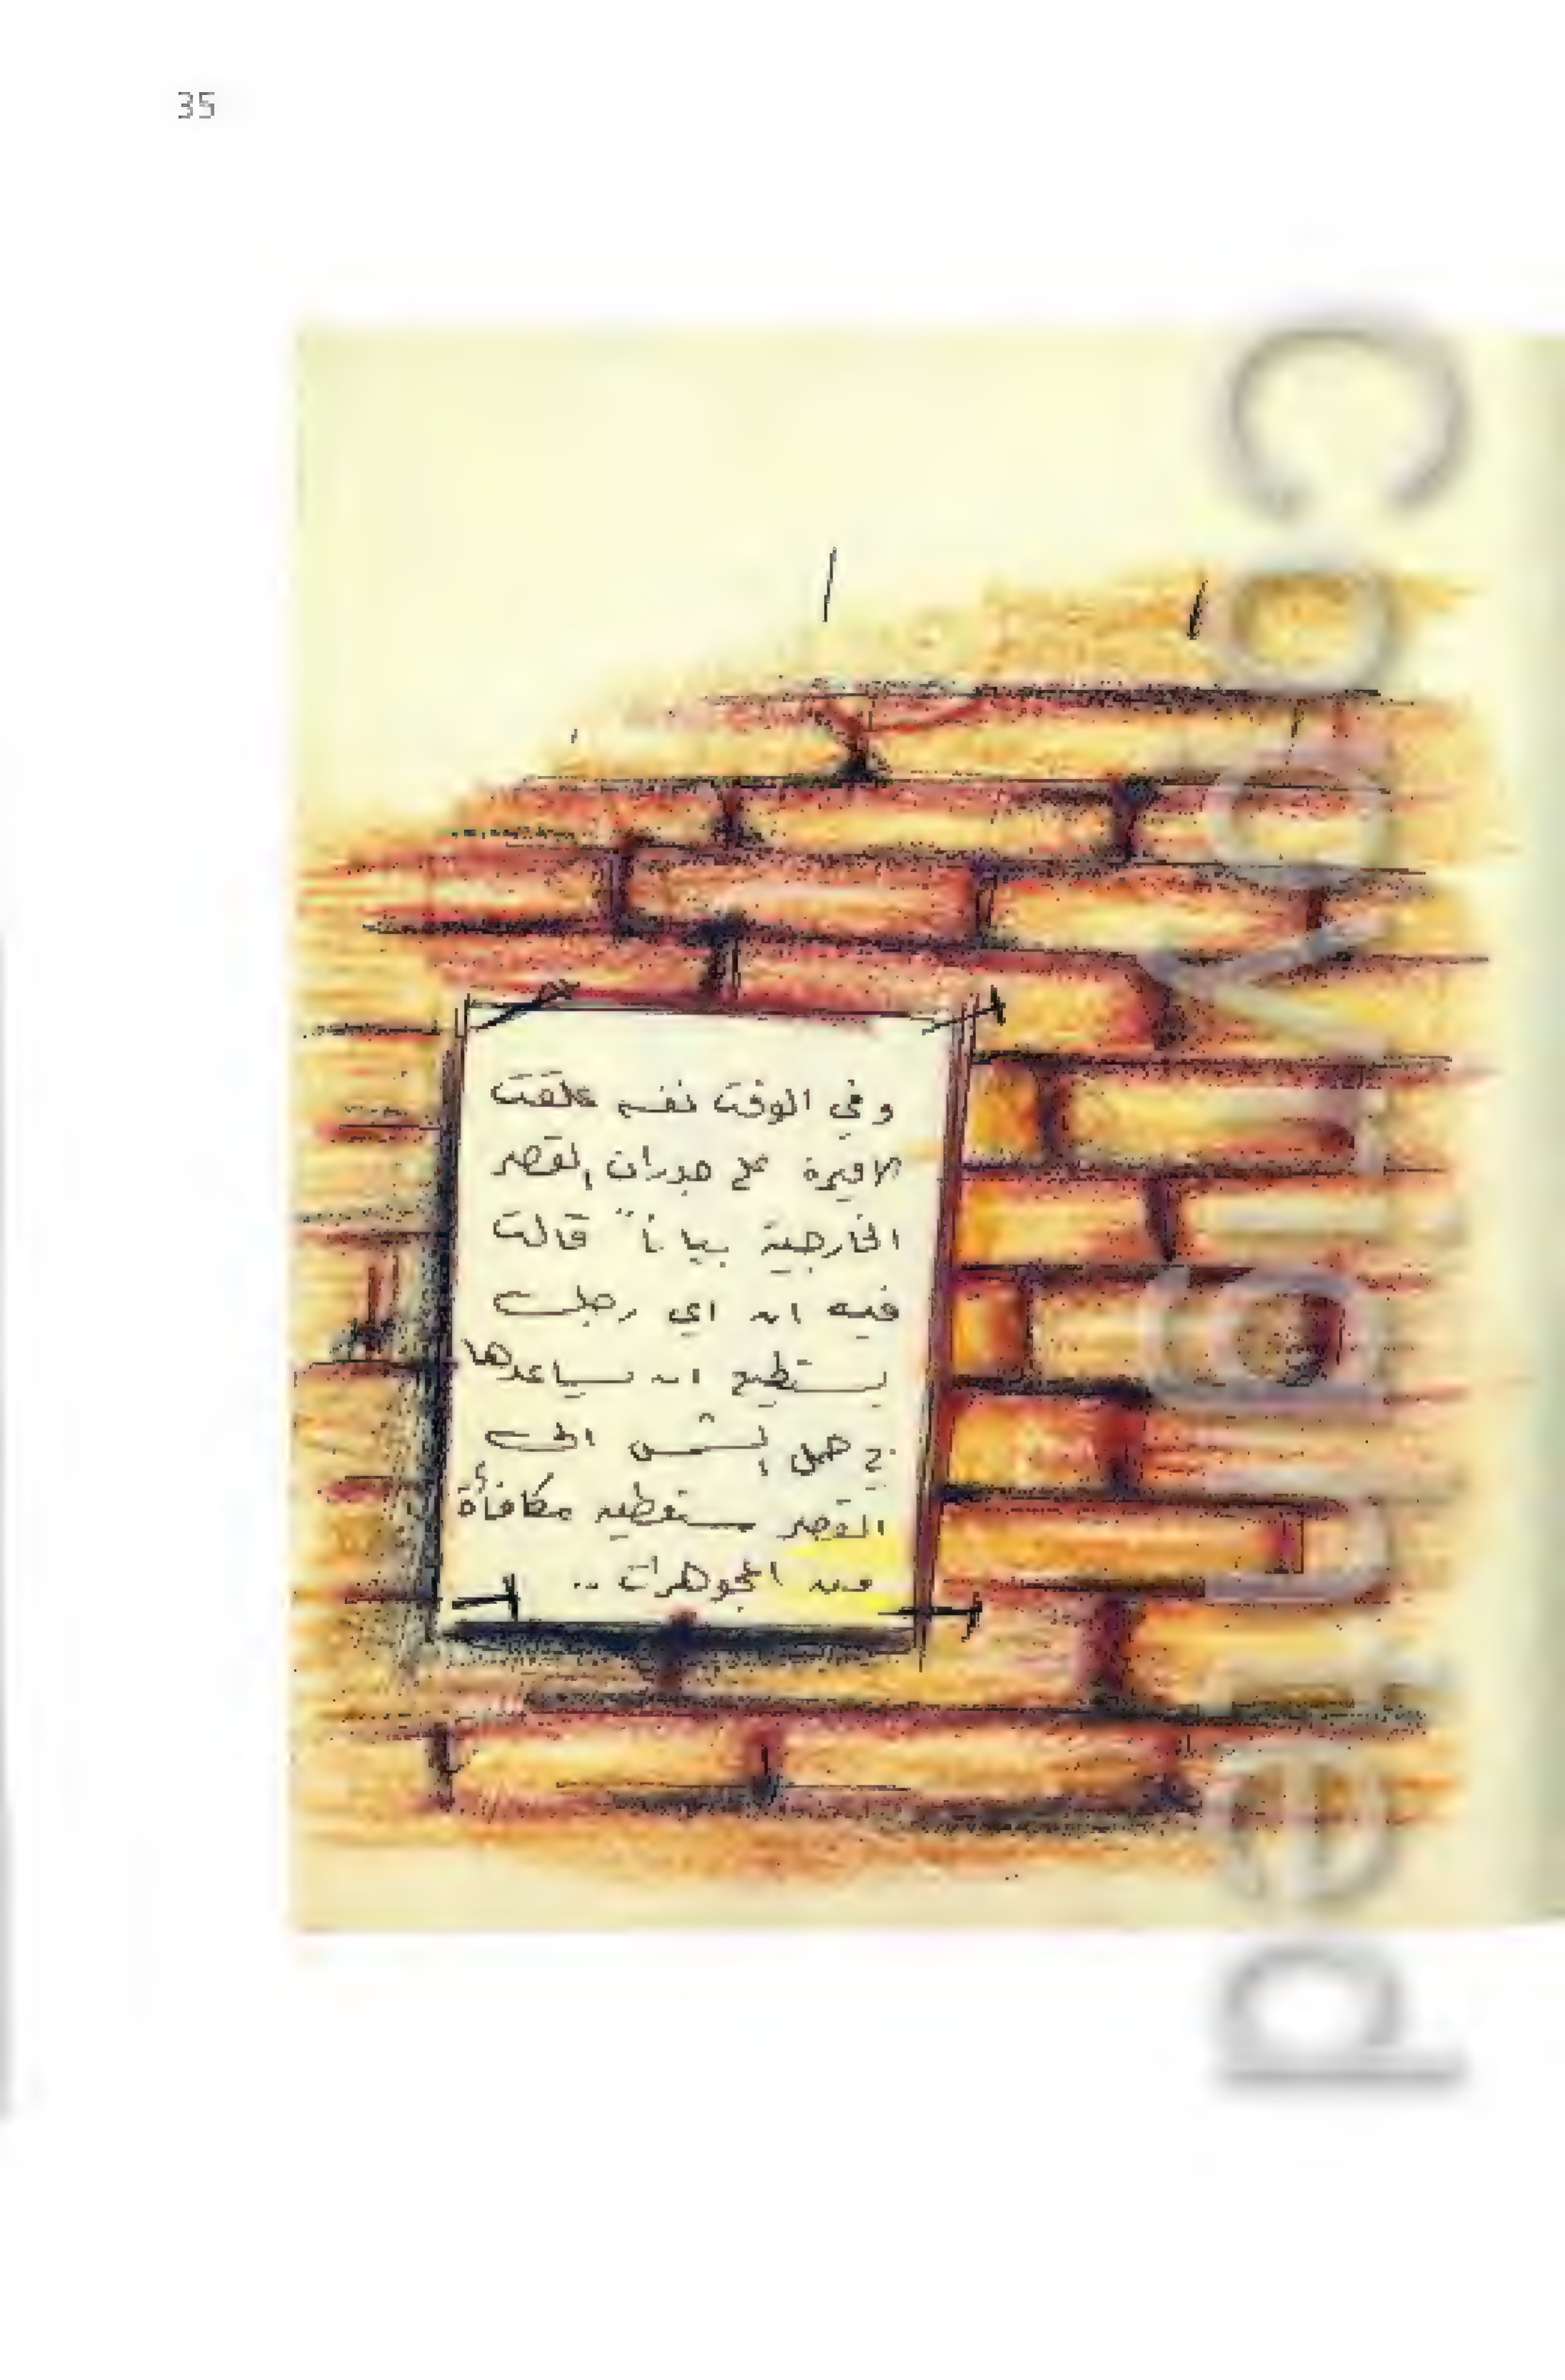 35
وفي الوقت نفسه علقت
الاميرة على جدران القصر
الخارجية بياناً قالت
فيه ان اي رجل
يستطيع ان يساعدها
في حمل الشمس الى
القصر ستعطيه مكافأة
من المجوهرات ..